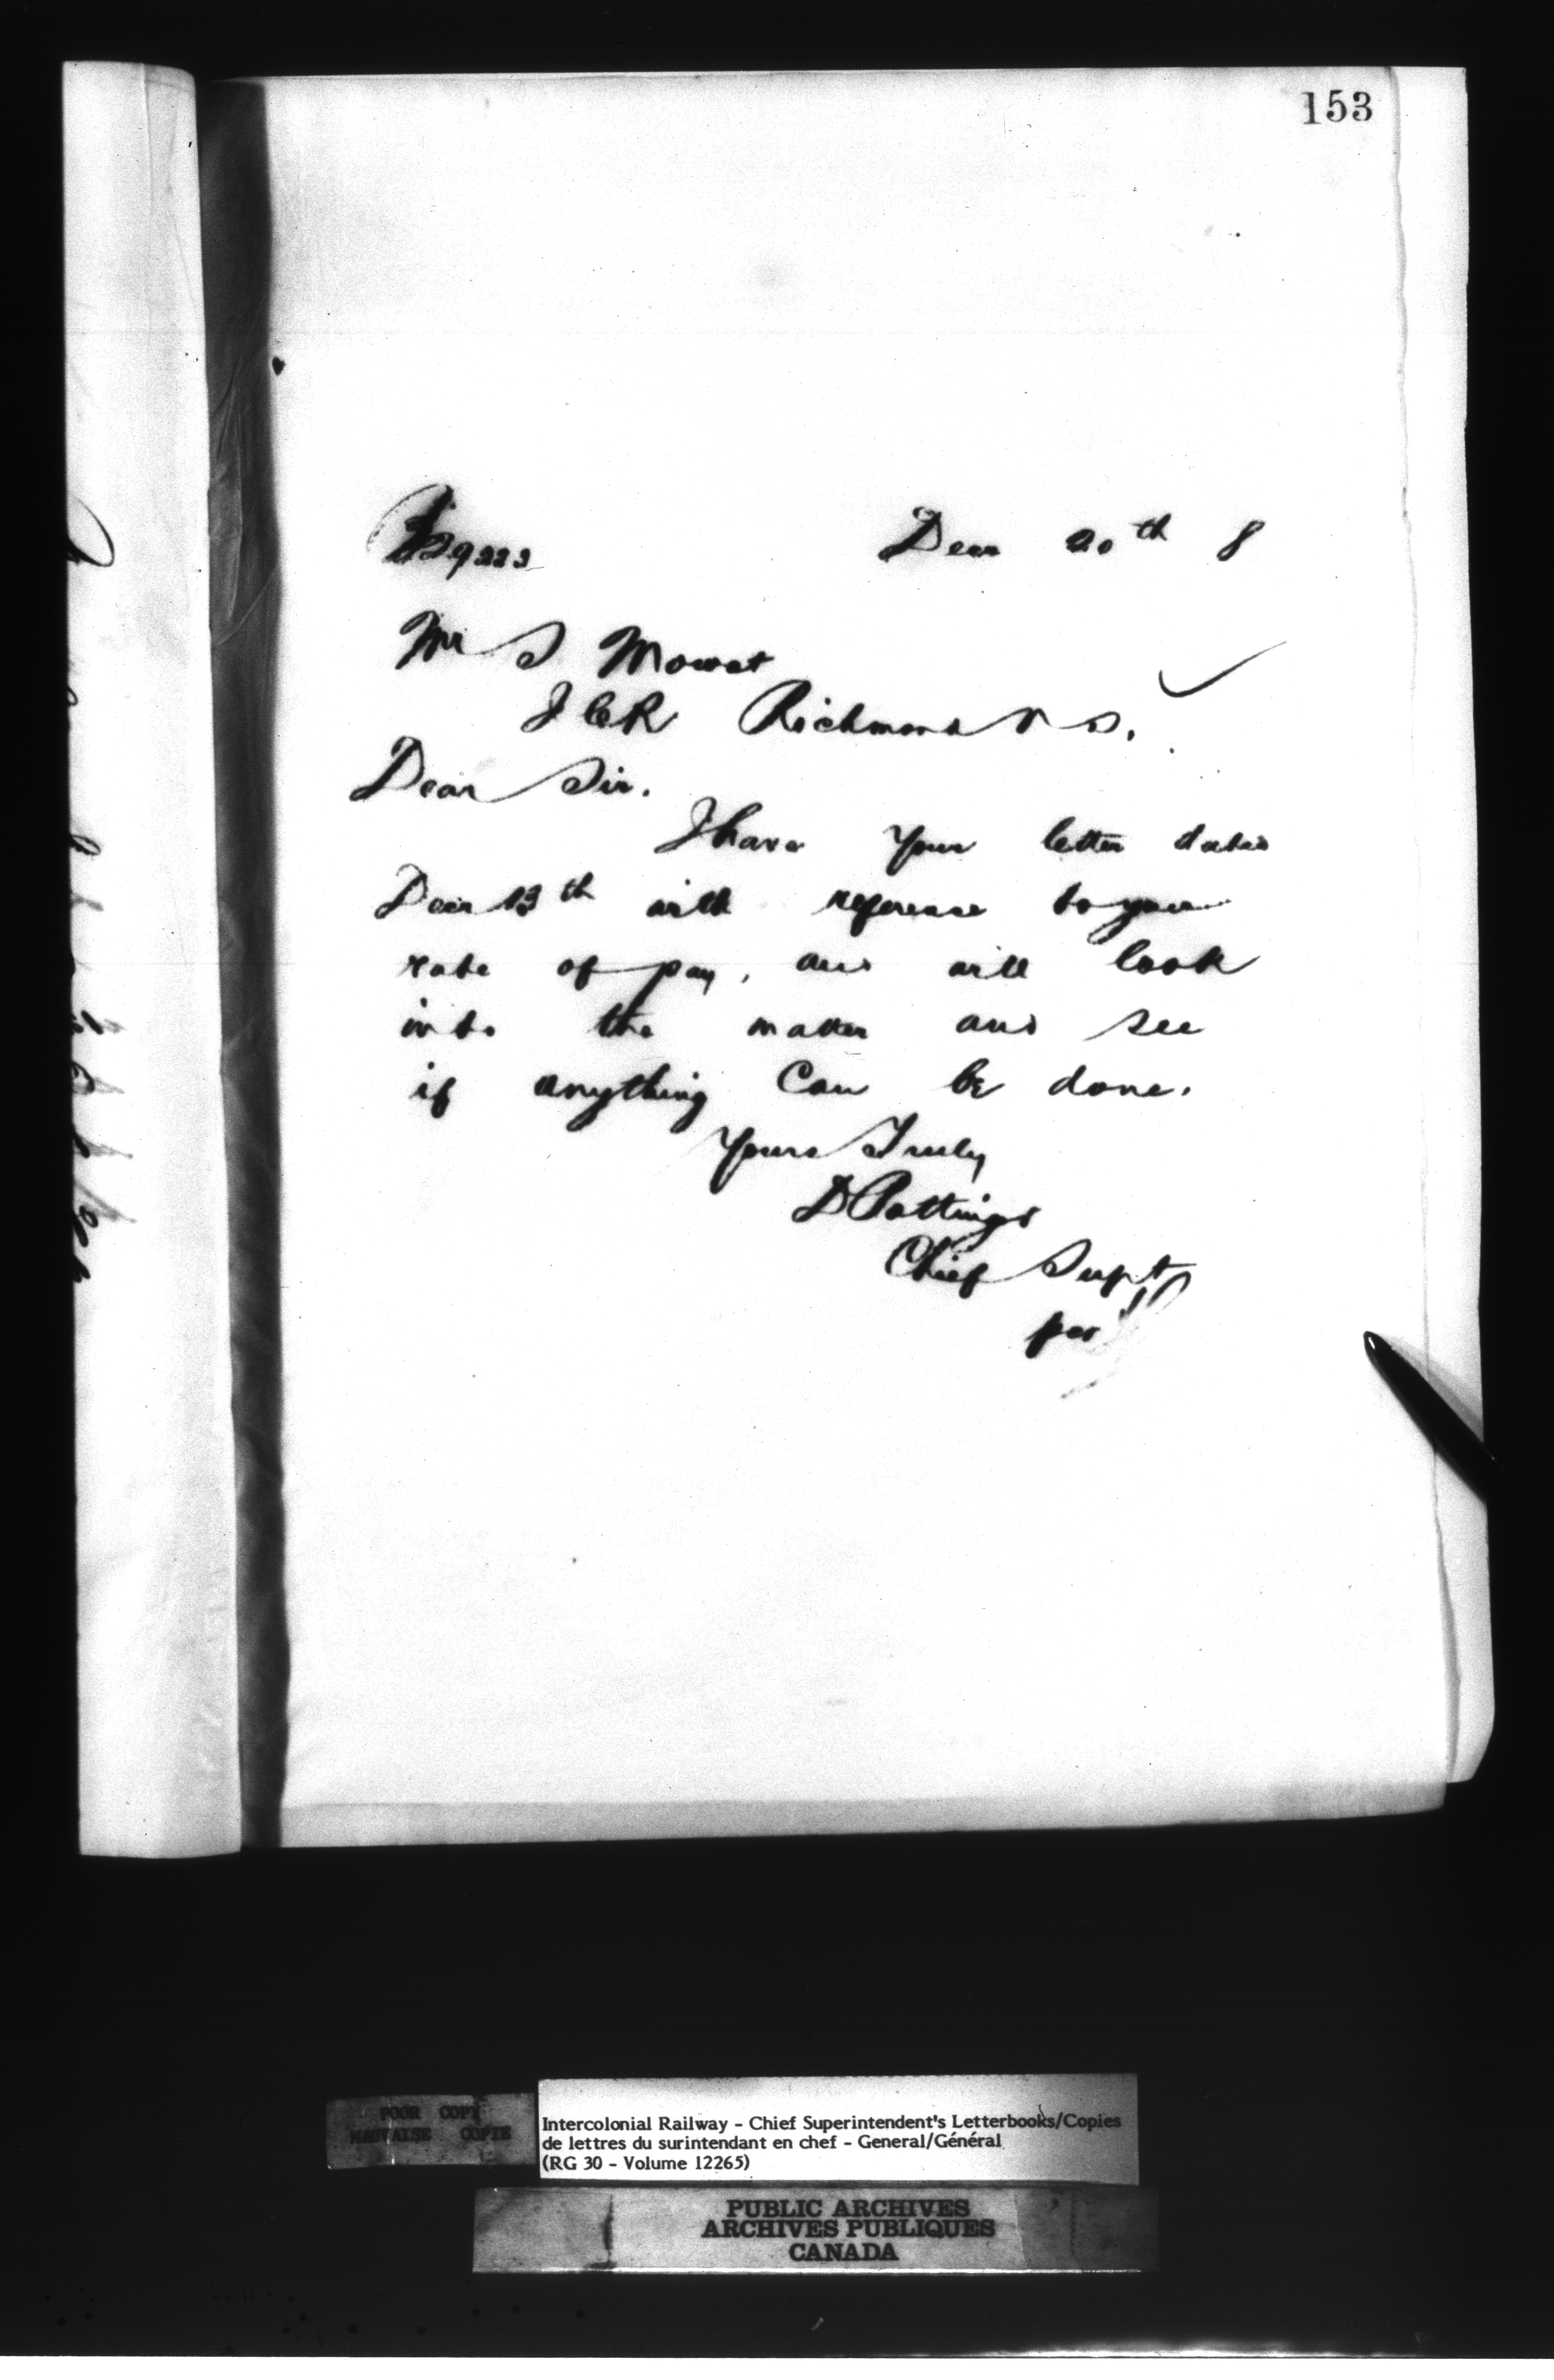 153
29222
Decr 20th 8
Mr S Mowat
I C R Richmond N S.
Dear Sir.
I have your letter dated
Decr 13th with reference to your
rate of pay, and will look
into the matter and see
if anything can be done.
Yours Truly
D Pottinger
Chief Supt
per
POOR COPY
MAUVAISE COPIE
Intercolonial Railway - Chief Superintendent's Letterbooks/Copies
de lettres du surintendant en chef - General/Général
(RG 30 - Volume 12265)
PUBLIC ARCHIVES
ARCHIVES PUBLIQUES
CANADA